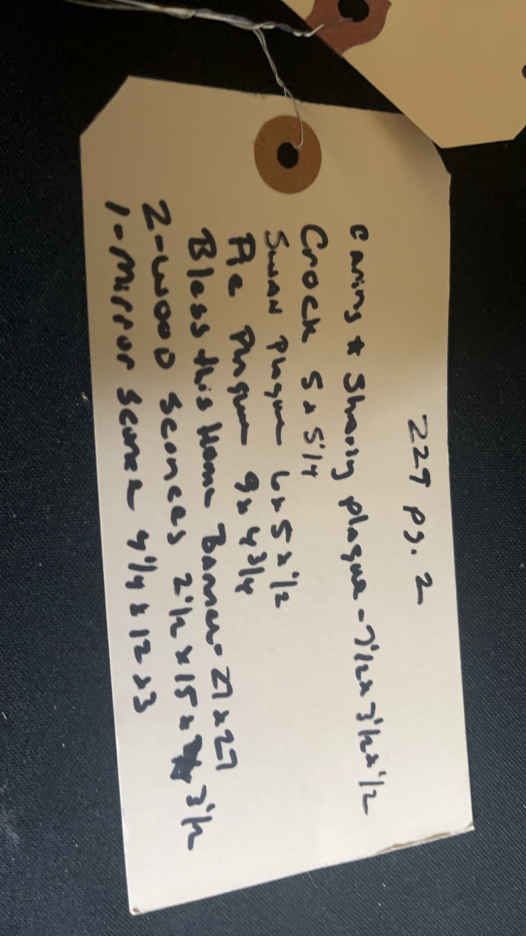 227 pg. 2
Caring & Sharing plaque - 7 1/2 x 3 1/2 x 1/2
Crock 5 x 5 1/4
Swan plaque 6 x 5 x 1/2
Pie plaque 9 x 4 3/4
Bless this Home Banner - 27 x 27
2 - wood sconces 2 1/2 x 15 x 3 1/2
1 - mirror sconce 4 1/4 x 12 x 3